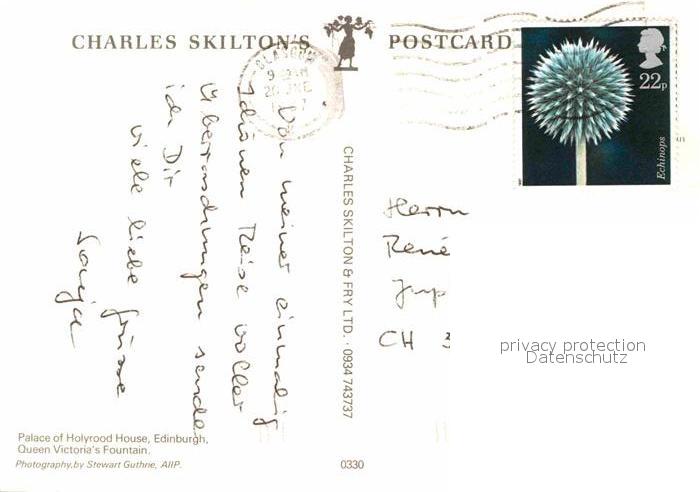 CHARLES SKILTON'S POSTCARD
GLASGOW
22p
Echinops
Von meiner einmalig
schönen Reise voller
Überraschungen sende
ich Dir
viele liebe Grüsse
Sonja
CHARLES SKILTON & FRY LTD. · 0934 743737
Herrn
René
CH 3
privacy protection
Datenschutz
Palace of Holyrood House, Edinburgh,
Queen Victoria's Fountain.
Photography,by Stewart Guthrie, AIIP.
0330